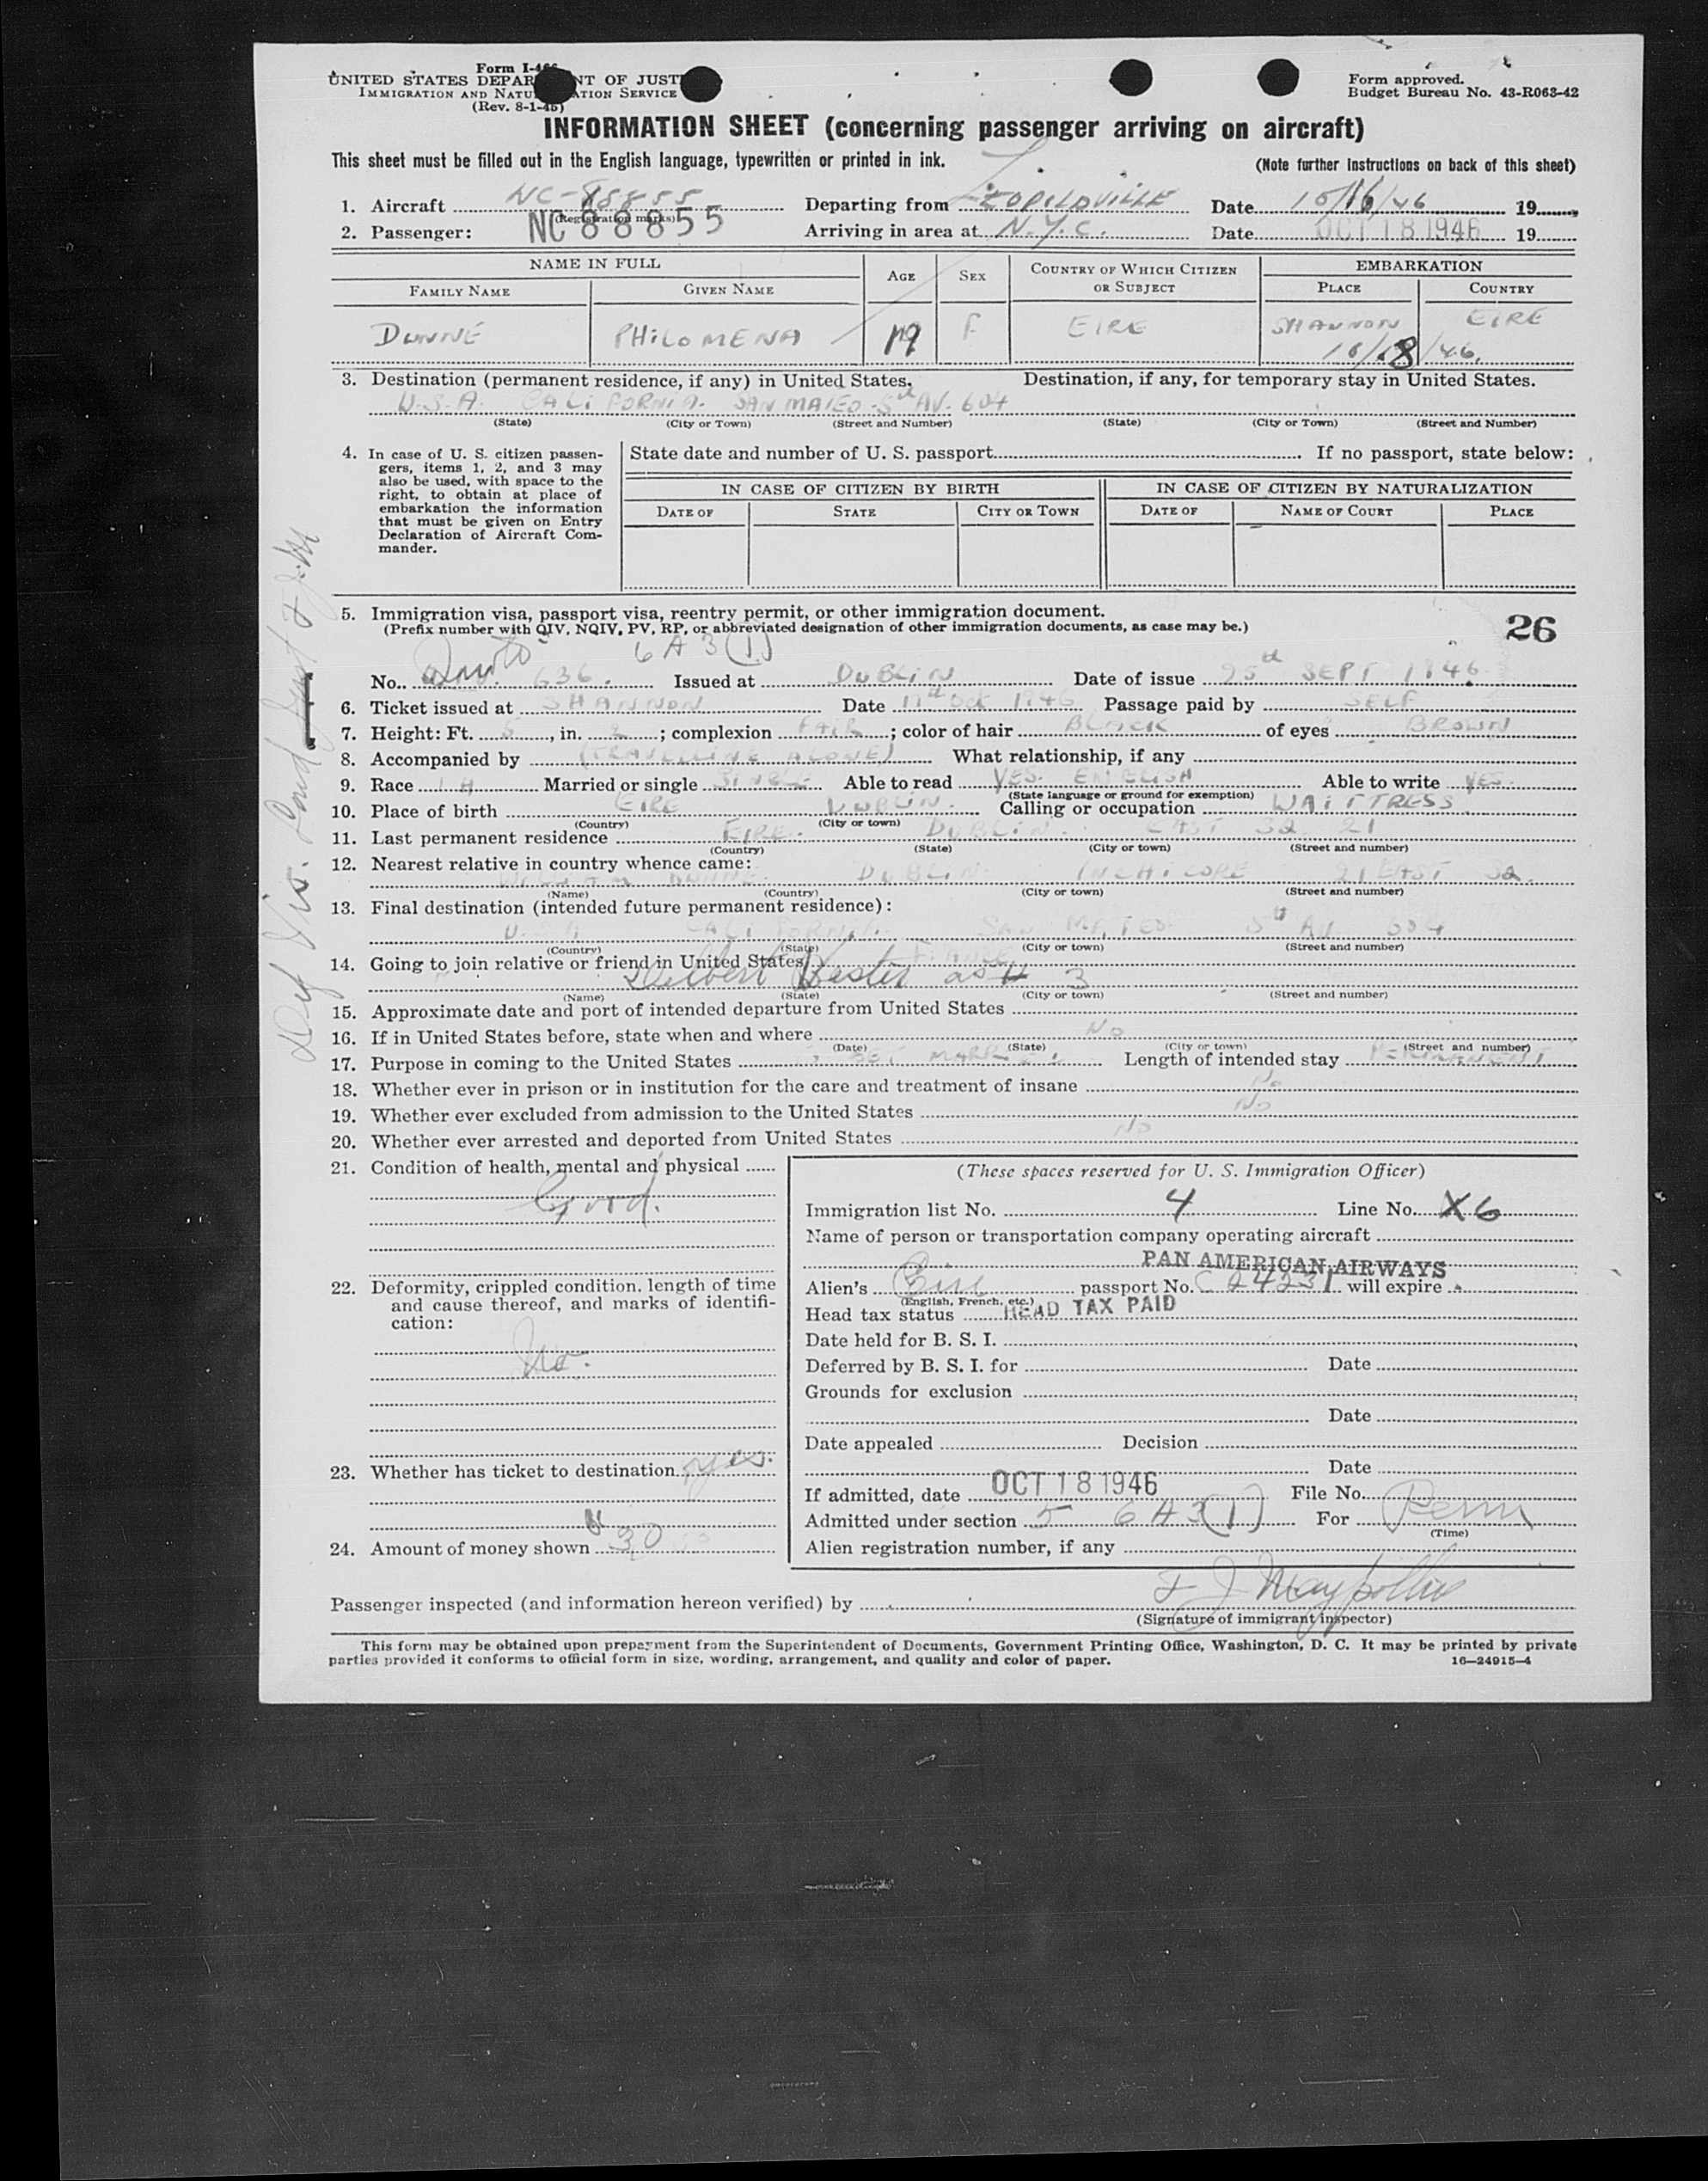 Form I-466
UNITED STATES DEPAR NT OF JUST
IMMIGRATION AND NATU ATION SERVICE
(Rev. 8-1-45)
Form approved.
Budget Bureau No. 43-R063-42
INFORMATION SHEET (concerning passenger arriving on aircraft)
This sheet must be filled out in the English language, typewritten or printed in ink.
(Note further instructions on back of this sheet)
1. Aircraft NC-88855 Departing from LEOPILDVILLE Date 10/16/46 19
(Registration marks)
2. Passenger: NC 88855 Arriving in area at N.Y.C. Date OCT 18 1946 19
NAME IN FULL AGE SEX COUNTRY OF WHICH CITIZEN OR SUBJECT EMBARKATION
FAMILY NAME GIVEN NAME PLACE COUNTRY
DUNNE PHILOMENA 19 F EIRE SHANNON EIRE
10/18/46.
3. Destination (permanent residence, if any) in United States. Destination, if any, for temporary stay in United States.
U.S.A. CALIFORNIA. SAN MATEO-5th AV. 604
(State) (City or Town) (Street and Number) (State) (City or Town) (Street and Number)
4. In case of U. S. citizen passen-
gers, items 1, 2, and 3 may
also be used, with space to the
right, to obtain at place of
embarkation the information
that must be given on Entry
Declaration of Aircraft Com-
mander.
State date and number of U. S. passport. If no passport, state below:
IN CASE OF CITIZEN BY BIRTH IN CASE OF CITIZEN BY NATURALIZATION
DATE OF STATE CITY OR TOWN DATE OF NAME OF COURT PLACE
5. Immigration visa, passport visa, reentry permit, or other immigration document.
(Prefix number with QIV, NQIV, PV, RP, or abbreviated designation of other immigration documents, as case may be.)
26
6 A 3 (1)
No. 636. Issued at DUBLIN Date of issue 25th SEPT 1946
6. Ticket issued at SHANNON Date 17th Oct 1946 Passage paid by SELF
7. Height: Ft. 5, in. 2; complexion FAIR; color of hair BLACK of eyes BROWN
8. Accompanied by (TRAVELLING ALONE) What relationship, if any
9. Race Married or single SINGLE Able to read YES. ENGLISH Able to write YES.
(State language or ground for exemption)
10. Place of birth EIRE DUBLIN. Calling or occupation WAITTRESS
(Country) (City or town)
11. Last permanent residence EIRE. DUBLIN. EAST 32 21
(Country) (State) (City or town) (Street and number)
12. Nearest relative in country whence came:
DUNNE. DUBLIN. INCHICORE 21 EAST 32.
(Name) (Country) (City or town) (Street and number)
13. Final destination (intended future permanent residence):
CALIFORNIA. SAN MATEO 5th AV 604
(Country) (State) (City or town) (Street and number)
14. Going to join relative or friend in United States
Delbert Hester as # 3
(Name) (State) (City or town) (Street and number)
15. Approximate date and port of intended departure from United States
16. If in United States before, state when and where No
(Date) (State) (City or town) (Street and number)
17. Purpose in coming to the United States GET MARRIED. Length of intended stay PERMANENT
18. Whether ever in prison or in institution for the care and treatment of insane No
19. Whether ever excluded from admission to the United States No
20. Whether ever arrested and deported from United States No
21. Condition of health, mental and physical
Good.
22. Deformity, crippled condition, length of time
and cause thereof, and marks of identifi-
cation:
No.
23. Whether has ticket to destination yes.
24. Amount of money shown 30
(These spaces reserved for U. S. Immigration Officer)
Immigration list No. 4 Line No. X6
Name of person or transportation company operating aircraft
PAN AMERICAN AIRWAYS
Alien's Eire passport No. C 24231 will expire
(English, French, etc.)
Head tax status HEAD TAX PAID
Date held for B. S. I.
Deferred by B. S. I. for Date
Grounds for exclusion
Date
Date appealed Decision
Date
If admitted, date OCT 18 1946 File No.
Admitted under section 5 6 A 3(1) For Perm
(Time)
Alien registration number, if any
Passenger inspected (and information hereon verified) by
(Signature of immigrant inspector)
This form may be obtained upon prepayment from the Superintendent of Documents, Government Printing Office, Washington, D. C. It may be printed by private
parties provided it conforms to official form in size, wording, arrangement, and quality and color of paper. 16—24915-4